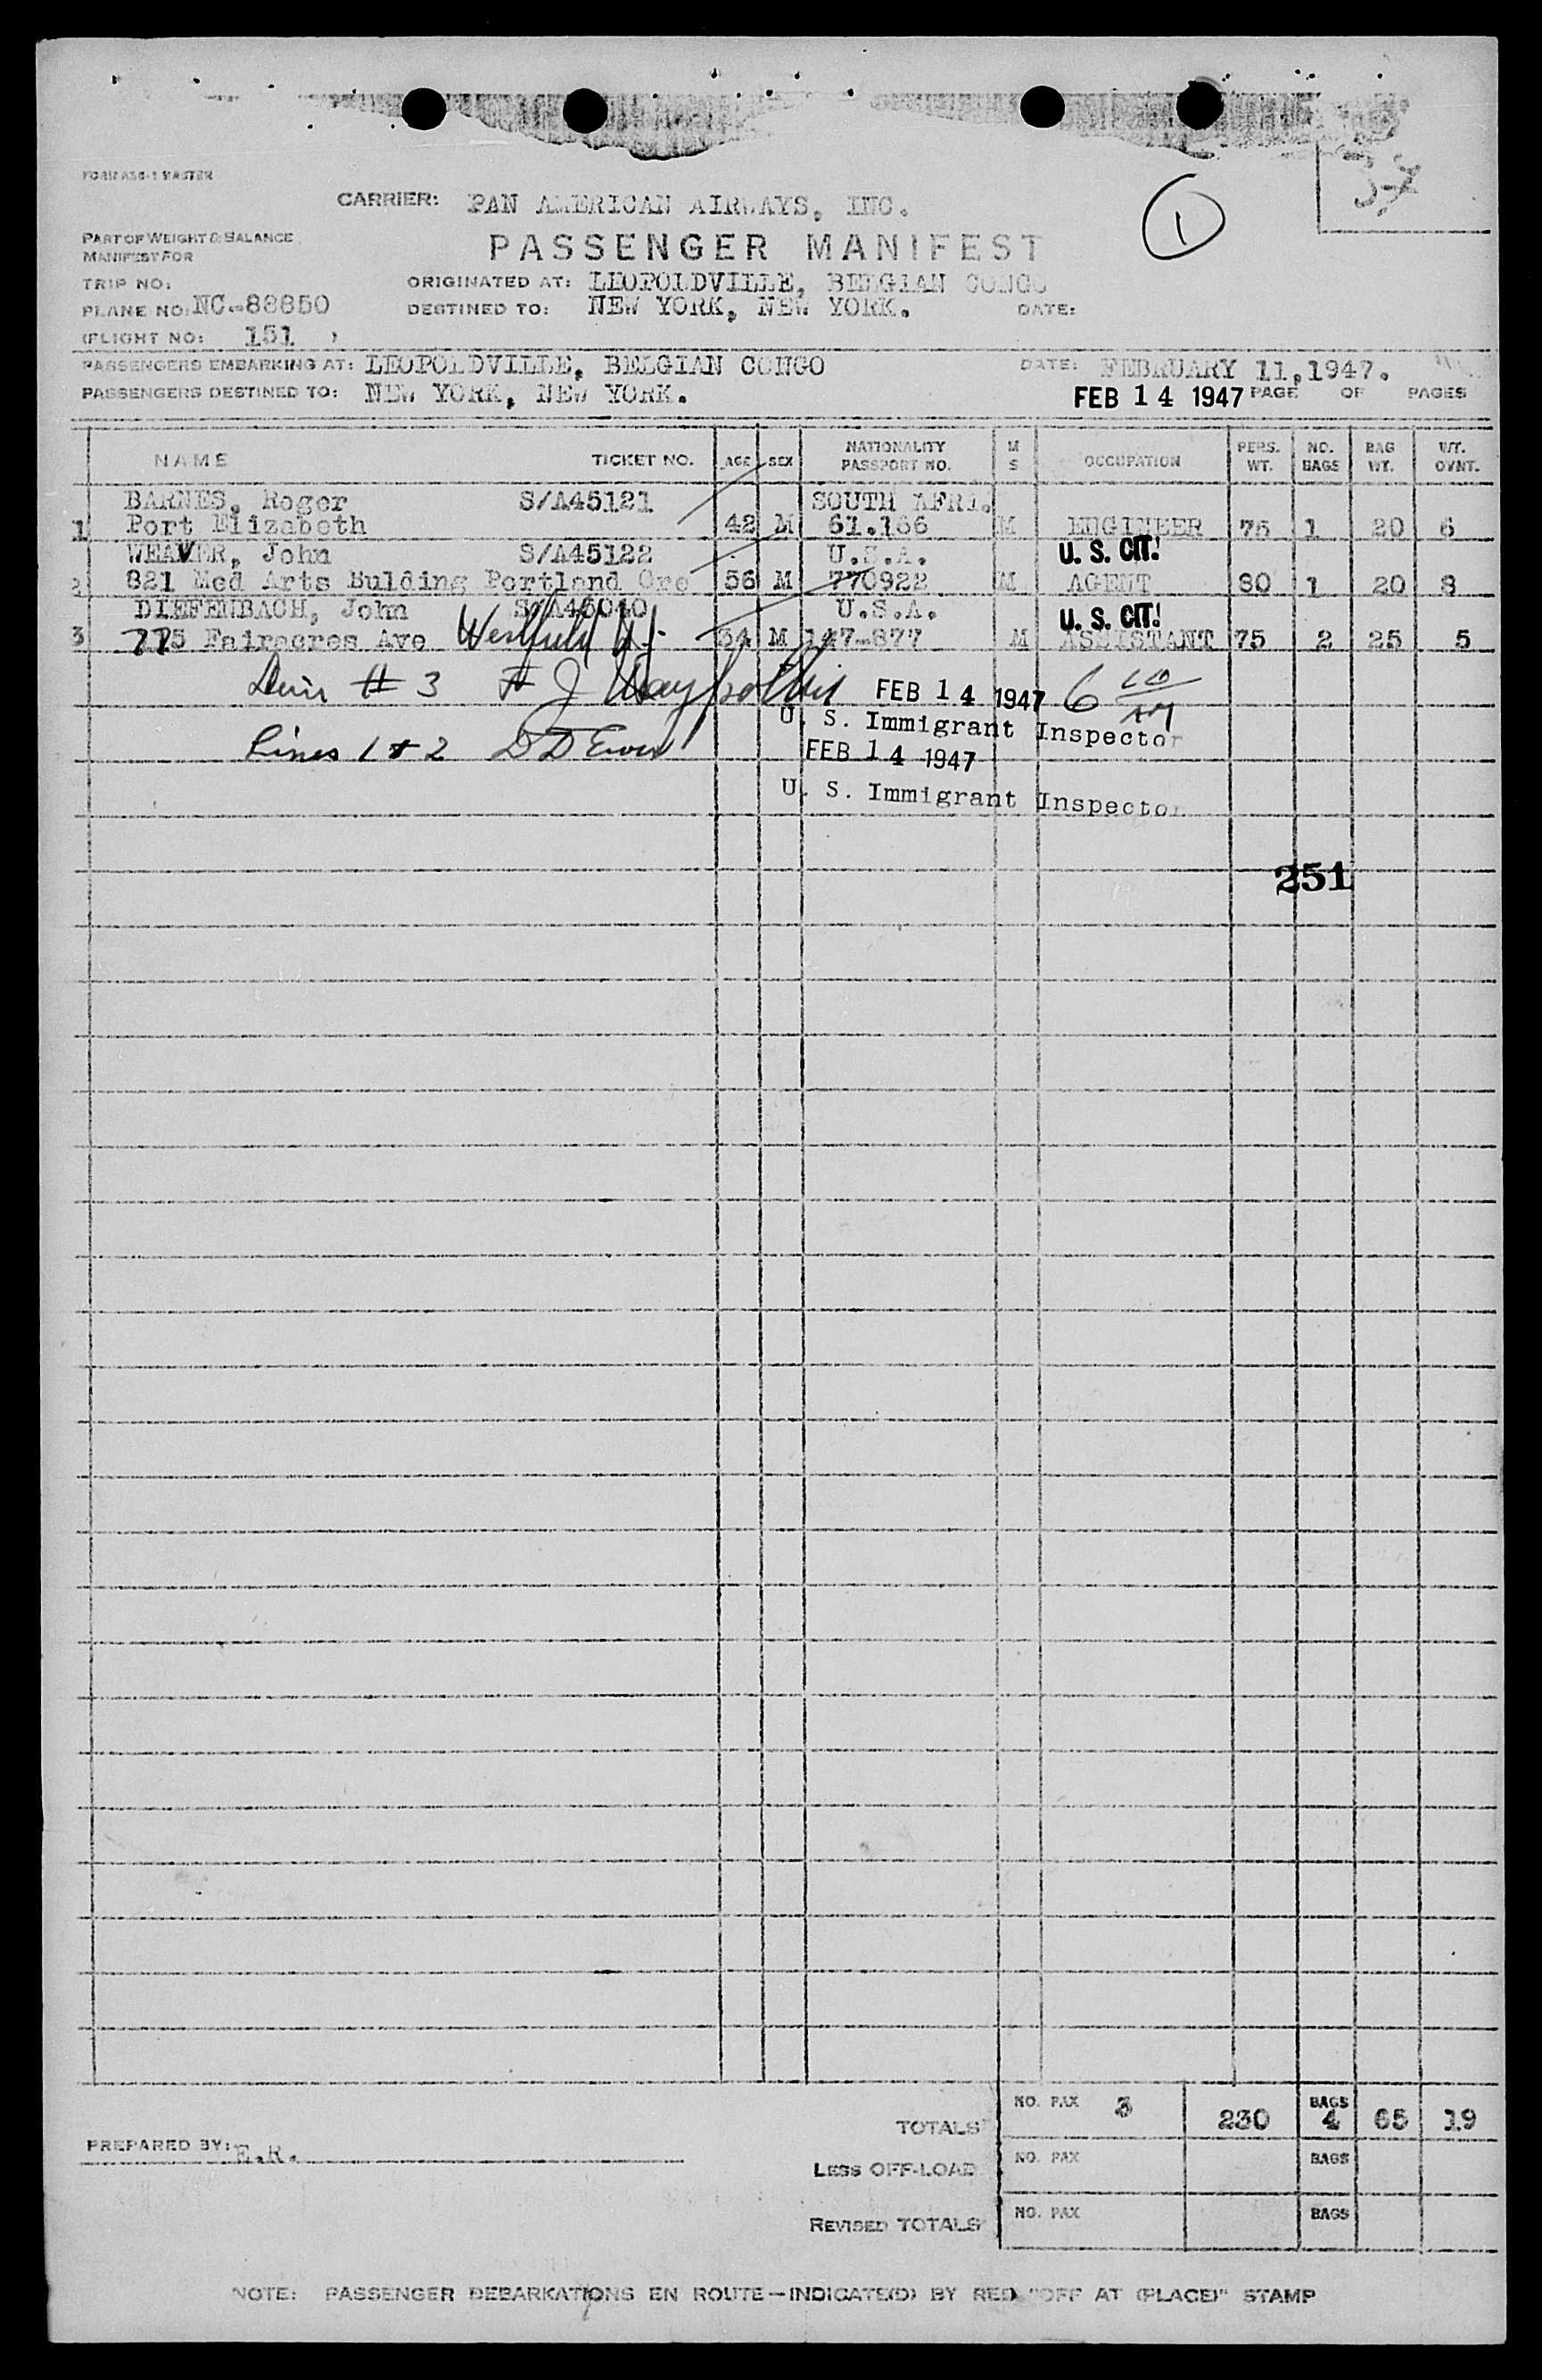 FORM ASG-1 MASTER
CARRIER: PAN AMERICAN AIRWAYS, INC.
1
37
PART OF WEIGHT & BALANCE
MANIFEST FOR
PASSENGER MANIFEST
TRIP NO:
ORIGINATED AT: LEOPOLDVILLE, BELGIAN CONGO
PLANE NO: NC-88850
DESTINED TO: NEW YORK, NEW YORK.
DATE:
(FLIGHT NO: 151 )
PASSENGERS EMBARKING AT: LEOPOLDVILLE, BELGIAN CONGO DATE: FEBRUARY 11,1947.
PASSENGERS DESTINED TO: NEW YORK, NEW YORK. FEB 14 1947 PAGE OF PAGES
NAME TICKET NO. AGE SEX NATIONALITY PASSPORT NO. M S OCCUPATION PERS. WT. NO. BAGS BAG WT. WT. OVNT.
BARNES, Roger S/A45121 SOUTH AFRI.
1 Port Elizabeth 42 M 61.166 M ENGINEER 75 1 20 6
WEAVER, John S/A45122 U.S.A. U. S. CIT.
2 821 Med Arts Bulding Portland Ore 56 M 770922 M AGENT 80 1 20 8
DIEFENBACH, John S/A45040 U.S.A. U. S. CIT.
3 775 Fairacres Ave Westfield N.J. 34 M 147-877 M ASSISTANT 75 2 25 5
# 3 FEB 14 1947 6 10 AM
U. S. Immigrant Inspector
Lines 1 & 2 FEB 14 1947
U. S. Immigrant Inspector
251
TOTALS NO. PAX 3 230 BAGS 4 65 19
PREPARED BY: E.R.
LESS OFF-LOAD NO. PAX BAGS
REVISED TOTALS NO. PAX BAGS
NOTE: PASSENGER DEBARKATIONS EN ROUTE—INDICATE(D) BY RED "OFF AT (PLACE)" STAMP